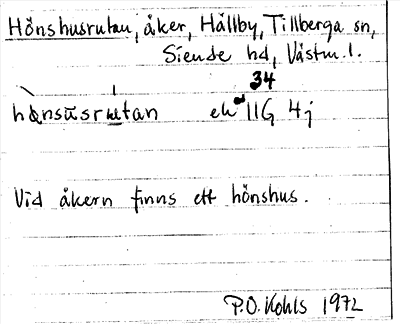 Hönshusrutan, åker, Hällby, Tillberga sn,
Siende hd, Västm. l.
34
hönsūsrutan ek 11G 4j
Vid åkern finns ett hönshus.
P.O. Kohls 1972